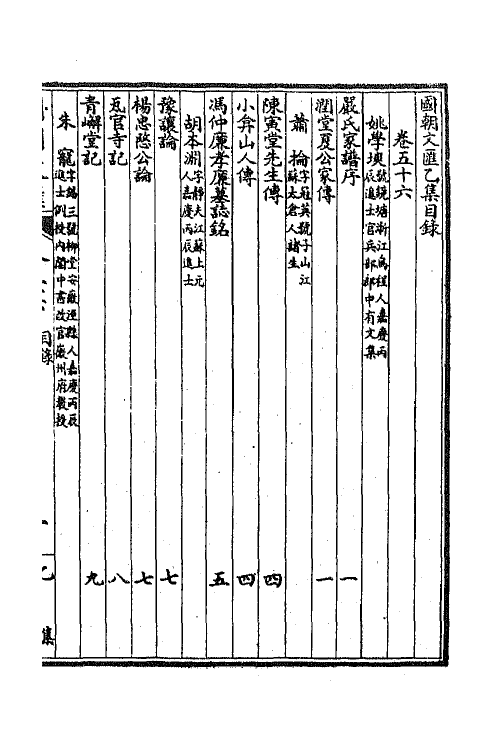 國朝文匯乙集目錄
卷五十六
姚學塽 號鏡塘浙江烏程人嘉慶丙辰進士官兵部郎中有文集
嚴氏家譜序 一
潤堂夏公家傳 一
蕭掄 字冠英號子山江蘇太倉人諸生
陳寅堂先生傳 四
小弇山人傳 四
馮仲廉孝廉墓誌銘 五
胡本淵 字靜夫江蘇上元人嘉慶丙辰進士
豫讓論 七
楊忠愍公論 七
瓦官寺記 八
青嶰堂記 九
朱寵 字錫三號柳堂安徽涇縣人嘉慶丙辰進士例授內閣中書改官徽州府教授
目錄
一
乙集